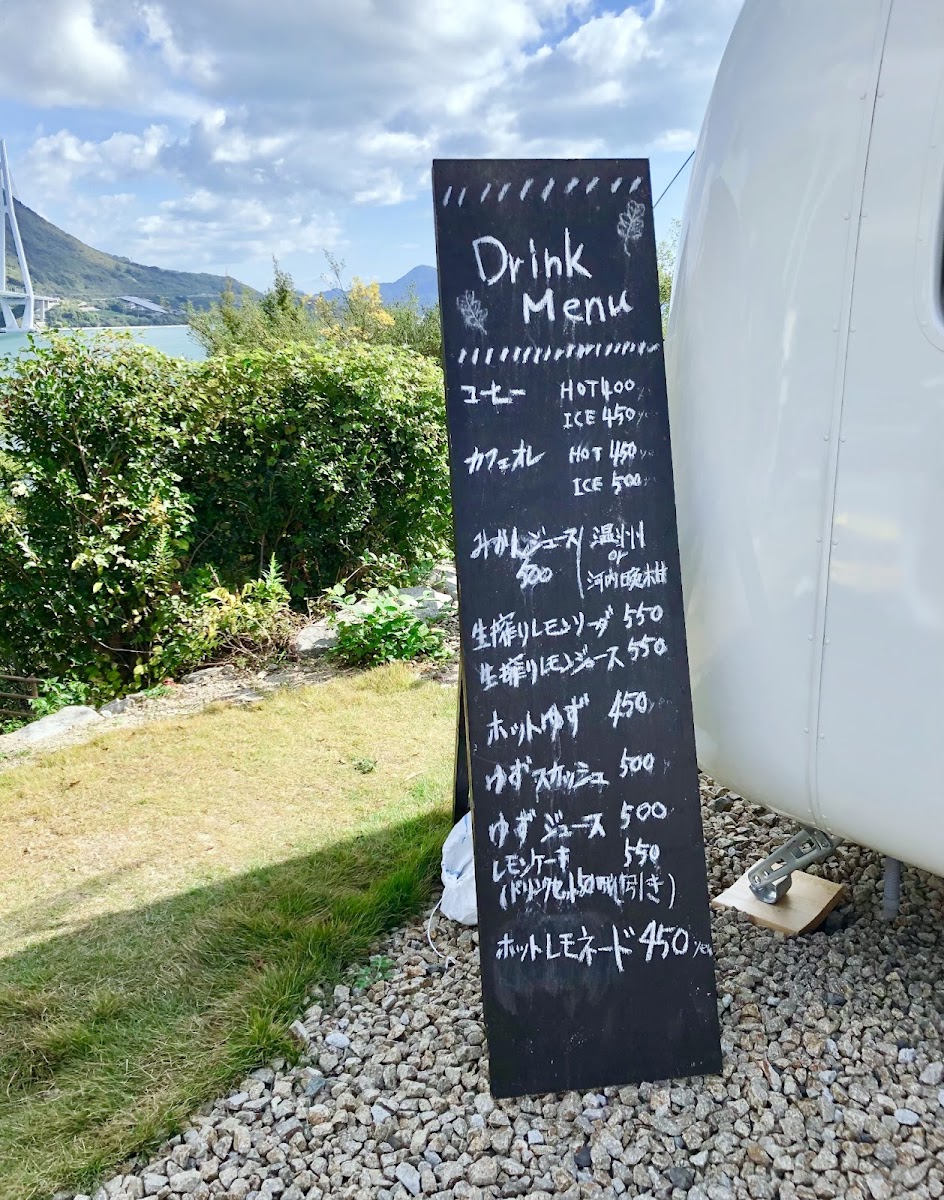 Drink
Menu
コーヒー HOT 400
ICE 450
カフェオレ HOT 450
ICE 500
みかんジュース 温州
500 or
河内晩柑
生搾りレモンソーダ 550
生搾りレモンジュース 550
ホットゆず 450
ゆずスカッシュ 500
ゆずジュース 500
レモンケーキ 550
(ドリンクセット50円引き)
ホットレモネード 450